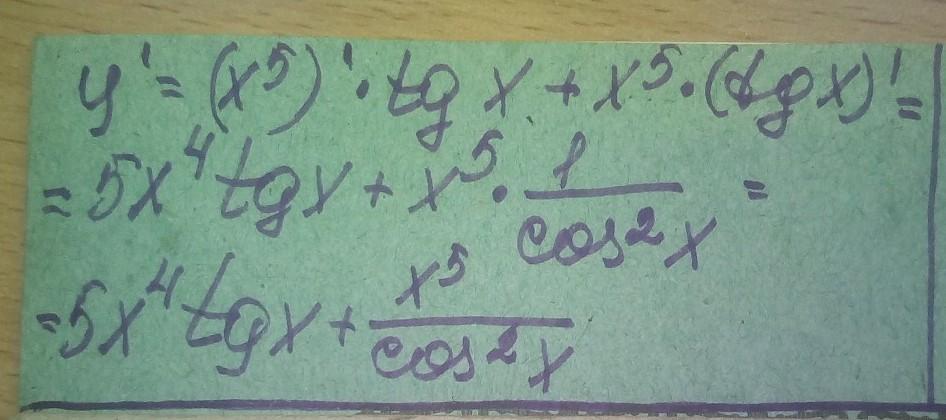 y' = (x⁵)' · tg x + x⁵ · (tg x)' =
= 5x⁴ tg x + x⁵ · 1/cos² x =
= 5x⁴ tg x + x⁵/cos² x